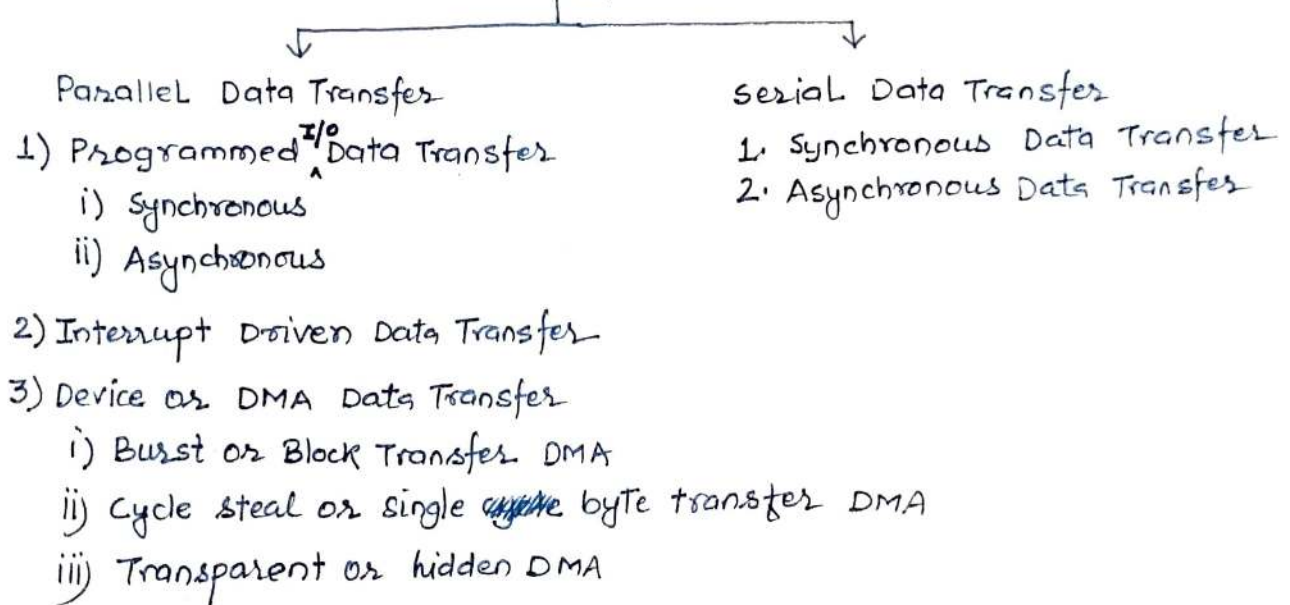 Parallel Data Transfer
1) Programmed I/O Data Transfer
i) Synchronous
ii) Asynchronous
2) Interrupt Driven Data Transfer
3) Device or DMA Data Transfer
i) Burst or Block Transfer DMA
ii) Cycle steal or single byte transfer DMA
iii) Transparent or hidden DMA
Serial Data Transfer
1. Synchronous Data Transfer
2. Asynchronous Data Transfer